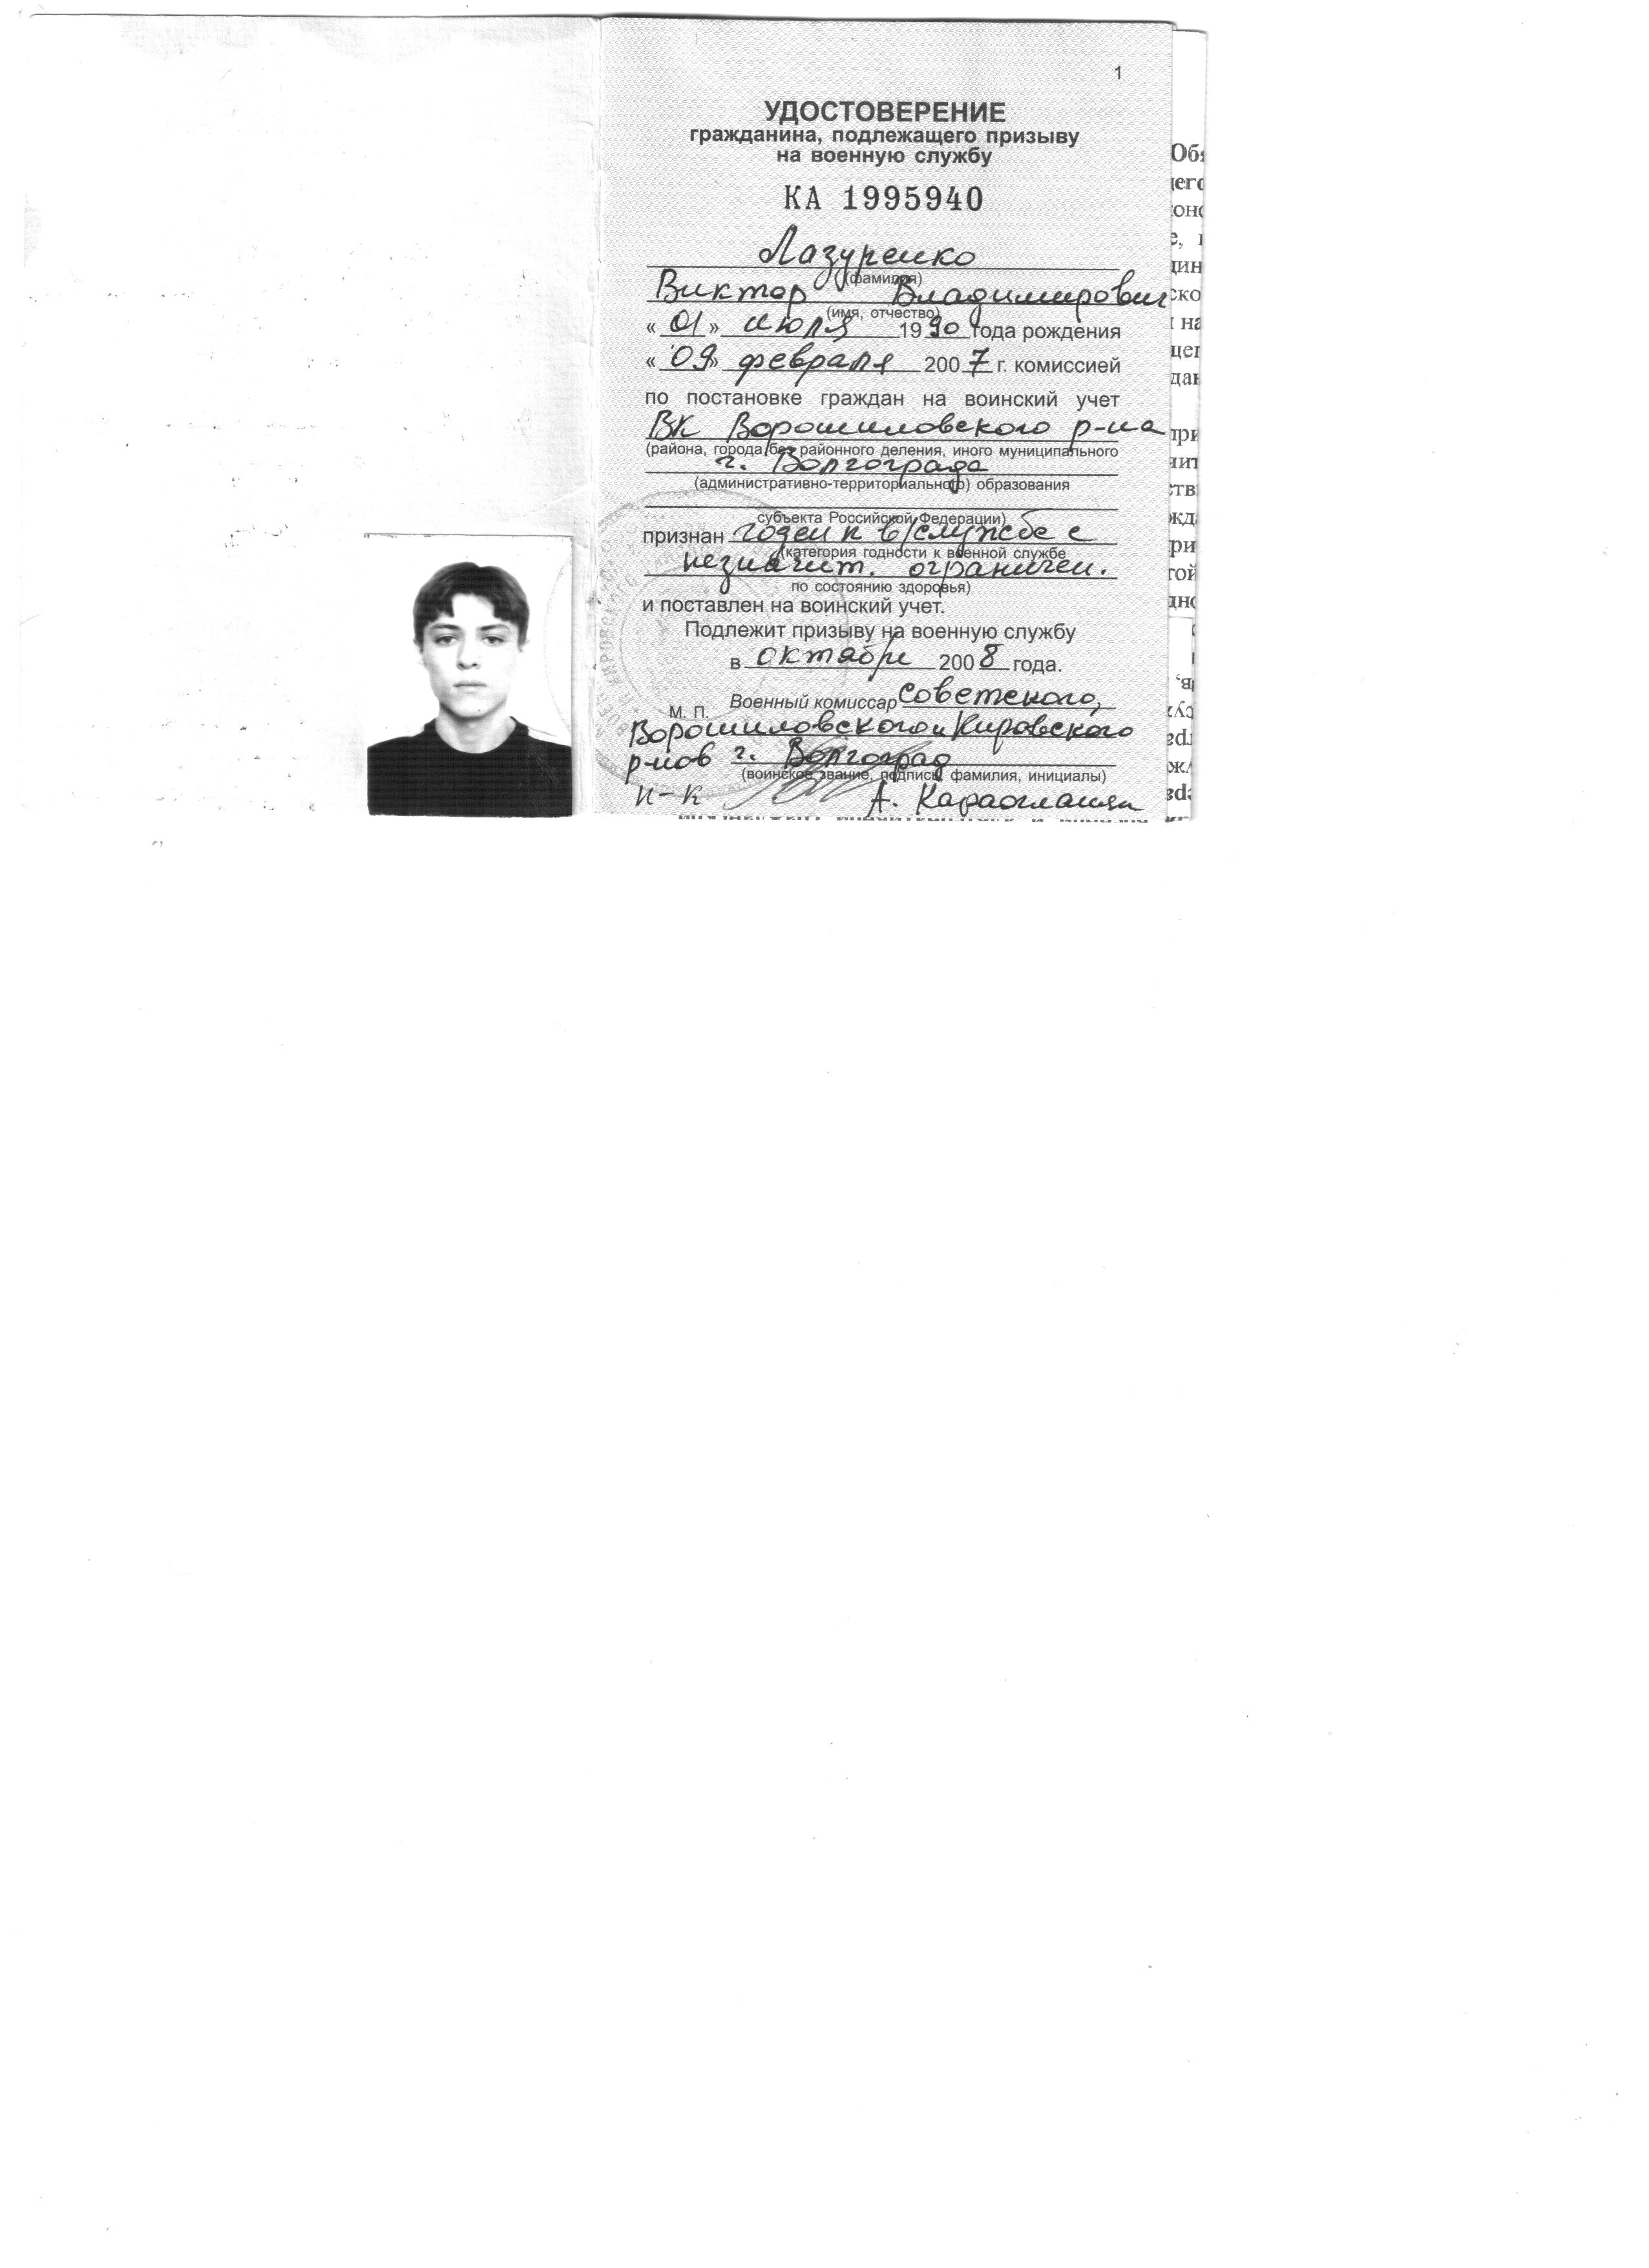 1
УДОСТОВЕРЕНИЕ
гражданина, подлежащего призыву
на военную службу
КА 1995940
Лазуренко
(фамилия)
Виктор Владимирович
(имя, отчество)
« 01 » июля 1990 года рождения
« 09 » февраля 2007 г. комиссией
по постановке граждан на воинский учет
ВК Ворошиловского р-на
(района, города без районного деления, иного муниципального
г. Волгограда
(административно-территориального) образования
субъекта Российской Федерации)
признан годен к в/службе с
(категория годности к военной службе
незначит. ограничен.
по состоянию здоровья)
и поставлен на воинский учет.
Подлежит призыву на военную службу
в октябре 2008 года.
Военный комиссар Советского,
М. П.
Ворошиловского и Кировского
р-нов г. Волгоград
(воинское звание, подпись, фамилия, инициалы)
п-к А. Караогланян